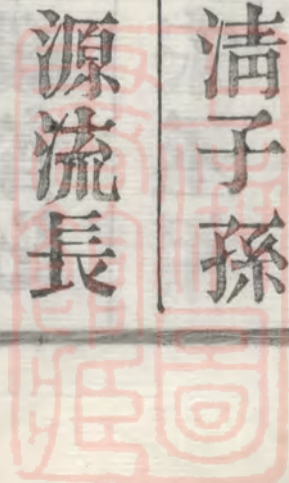 淸子孫
源流長